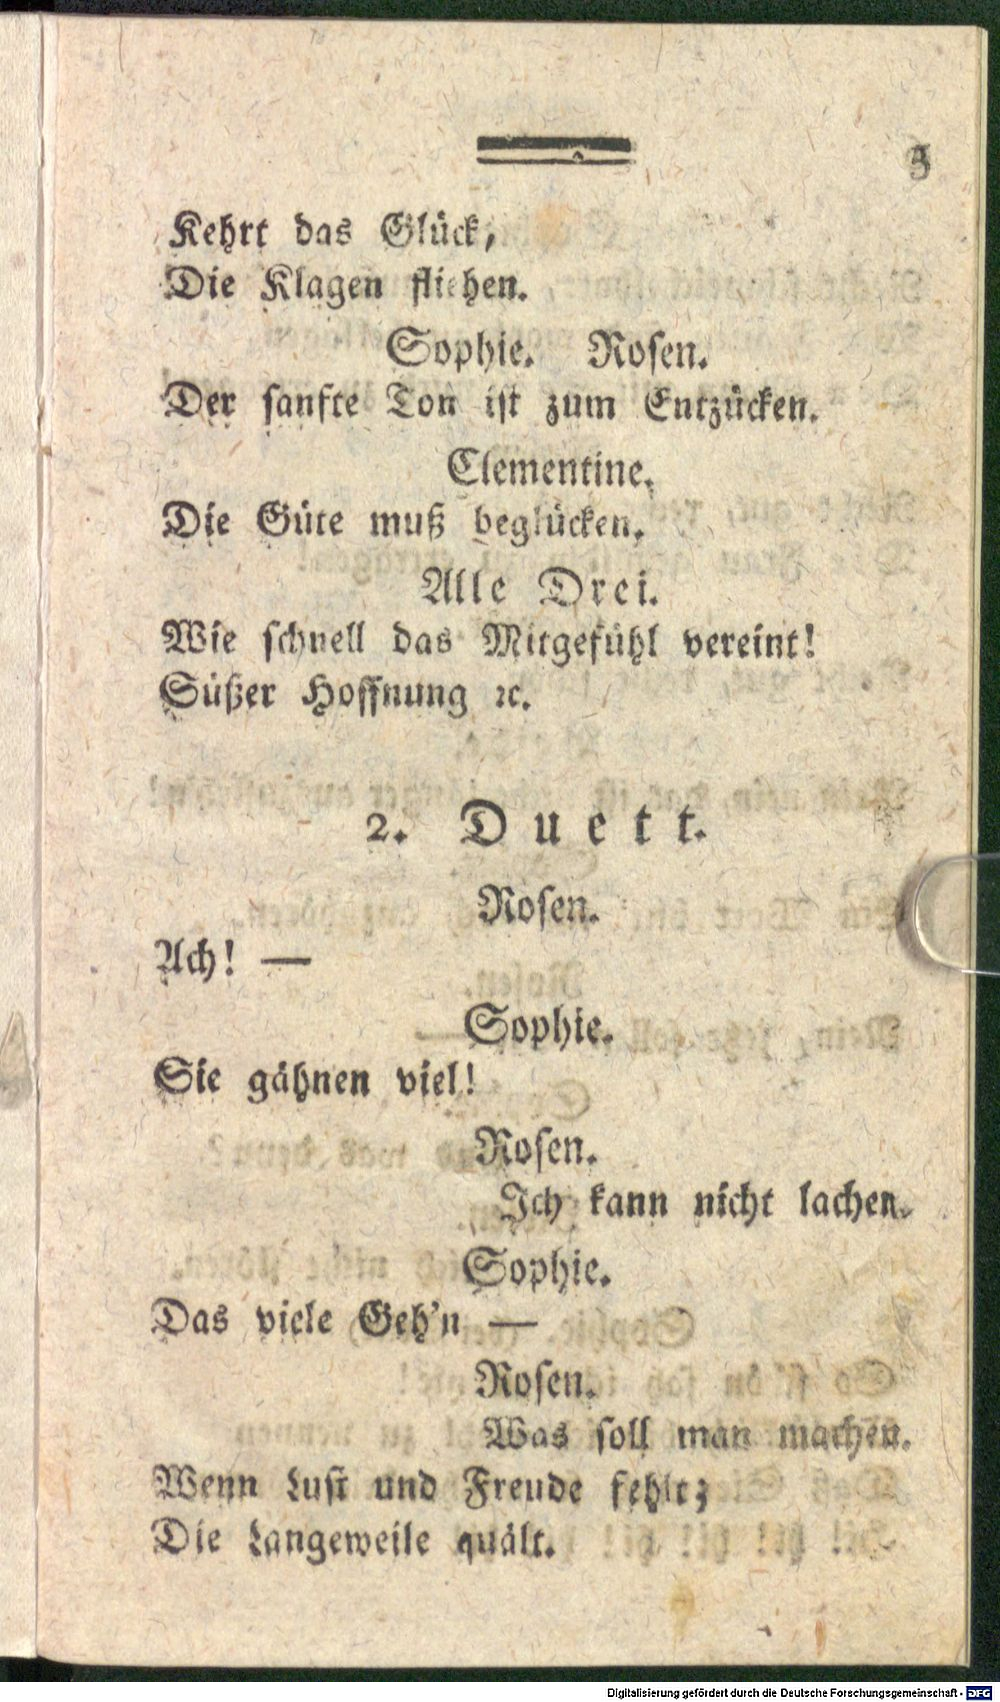 5
Kehrt das Glück,
Die Klagen fliehen.
Sophie. Rosen.
Der sanfte Ton ist zum Entzücken.
Clementine.
Die Güte muß beglücken.
Alle Drei.
Wie schnell das Mitgefühl vereint!
Süßer Hoffnung ꝛc.
2. Duett.
Rosen.
Ach! —
Sophie.
Sie gähnen viel!
Rosen.
Ich kann nicht lachen.
Sophie.
Das viele Geh'n —
Rosen.
Was soll man machen.
Wenn Lust und Freude fehlt;
Die Langeweile quält.
Digitalisierung gefördert durch die Deutsche Forschungsgemeinschaft - DFG